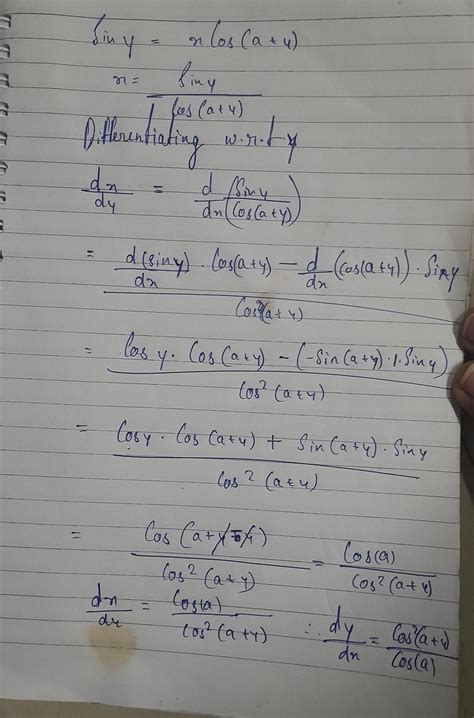 Sin y = x Cos (a+y)
x = Sin y / Cos (a+y)
Differentiating w.r.t y
dx/dy = d/dx (Sin y / Cos (a+y))
= (d(sin y)/dx · Cos(a+y) − d/dx (Cos(a+y)) · Sin y) / Cos²(a+y)
= (Cos y · Cos (a+y) − (−Sin (a+y) · 1 · Sin y)) / Cos² (a+y)
= (Cos y · Cos (a+y) + Sin (a+y) · Sin y) / Cos² (a+y)
= Cos (a+y−y) / Cos² (a+y) = Cos(a) / Cos² (a+y)
dx/dy = Cos(a) / Cos² (a+y) ∴ dy/dx = Cos²(a+y) / Cos(a)